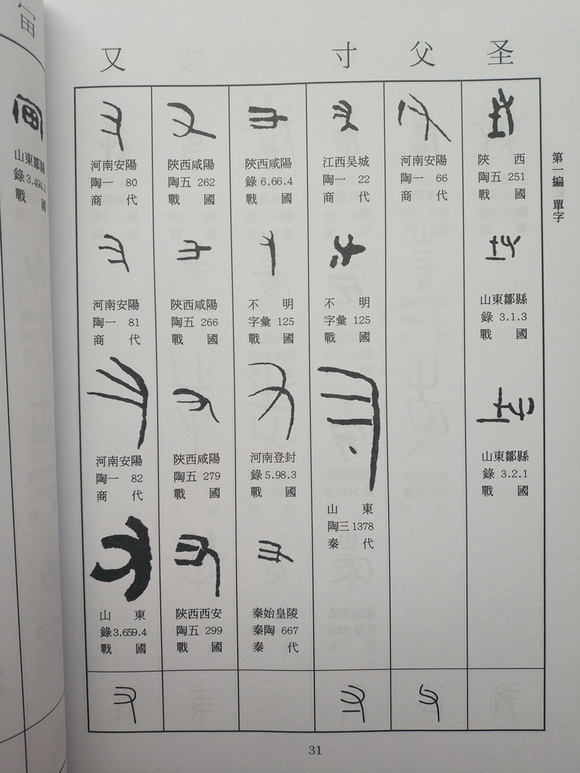 山東鄒縣
戰國
又
寸
父
圣
河南安陽
陶一 80
商代
河南安陽
陶一 81
商代
河南安陽
陶一 82
商代
山東
錄3.659.4
戰國
陝西咸陽
陶五 262
戰國
陝西咸陽
陶五 266
戰國
陝西咸陽
陶五 279
戰國
陝西西安
陶五 299
戰國
陝西咸陽
錄 6.66.4
戰國
不明
字彙 125
戰國
河南登封
錄 5.98.3
戰國
秦始皇陵
秦陶 667
秦代
江西吴城
陶一 22
商代
不明
字彙 125
戰國
山東
陶三 1378
秦代
河南安陽
陶一 66
商代
陝西
陶五 251
戰國
山東鄒縣
錄 3.1.3
戰國
山東鄒縣
錄 3.2.1
戰國
第一編 單字
31